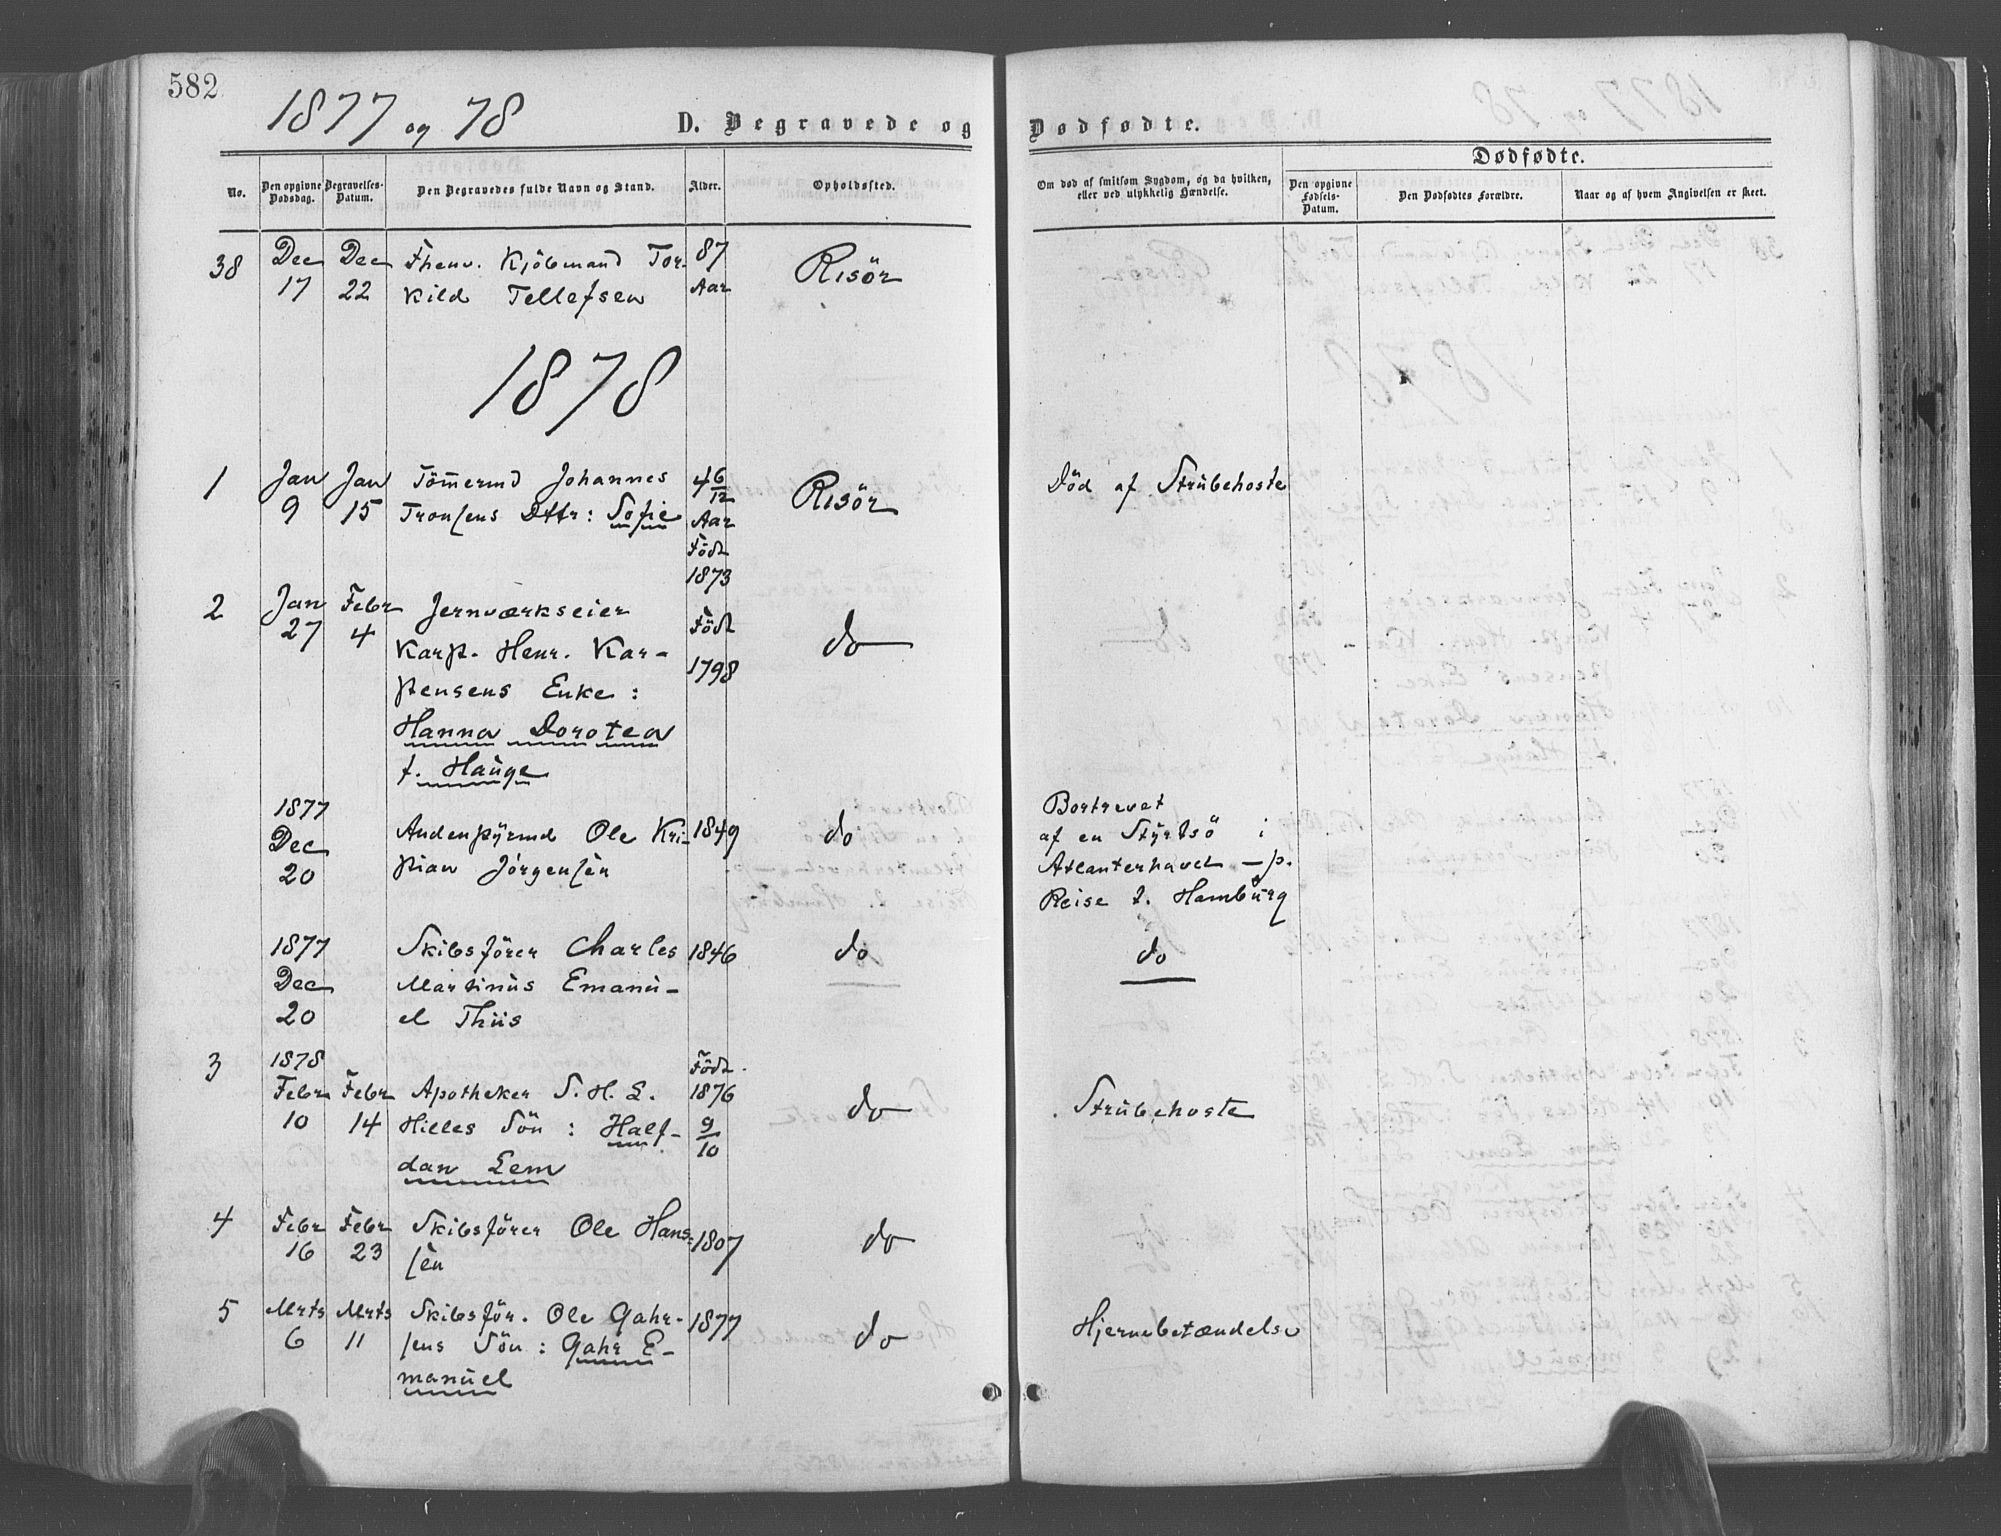 582
1877 og 78
D. Begravede og Dødfødte.
Dødfødte.
No.
Den opgivne Dødsdag.
Begravelses-Datum.
Den Begravedes fulde Navn og Stand.
Alder.
Opholdssted.
Om død af smitsom Sygdom, og da hvilken, eller ved ulykkelig Hændelse.
Den opgivne Fødsels-Datum.
Den Dødfødtes Forældre.
Naar og af hvem Angivelsen er skeet.
38 Dec Dec Fhenv. Kjöbmand Tor- 87 Risör
17 22 kild Tellefsen Aar
1878
1 Jan Jan Tömermd Johannes 4 6/12 Risör Död af Strübehoste
9 15 Tronsens Dttr: Sofie Aar
Födt
1873
2 Jan Febr Jernværkseier Födt do
27 4 Karst. Henr. Kar- 1798
stensens Enke:
Hanna Dorotea
f. Haüge
1877 Bortrevet
Dec Andenstyrmd Ole Kri- 1849 do af en Styrtsö i
20 stian Jörgensen Atlanterhavet – p.
Reise t. Hambürg
1877 Skibsförer Charles 1846 do do
Dec Martinüs Emanü-
20 el Thiis
3 1878 Födt
Febr Febr Apotheker S. H. L. 1876 do Strübehoste
10 14 Hilles Sön: Half- 9/10
dan Lem
4 Febr Febr Skibsförer Ole Hans- 1807 do
16 23 sen
5 Mrts Mrts Skibsför. Ole Gahr- 1877 do Hjernebetændelse
6 11 sens Sön: Gahr E-
manüel